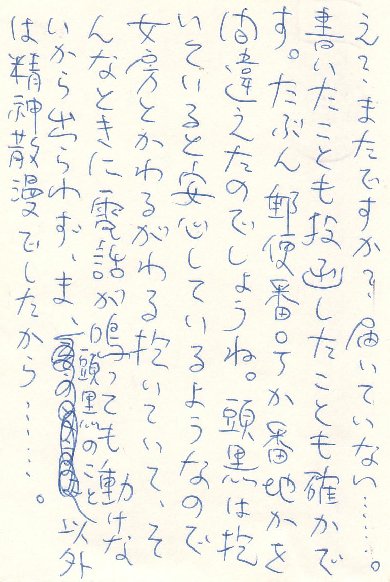 えゝまたですかァ、届いていない……。
書いたことも投函したことも確かで
す。たぶん郵便番号か番地かを
間違えたのでしょうね。頭黒は抱
いていると安心しているようなので
女房とかわるがわる抱いていて、そ
んなときに電話が鳴っても動けな
いから出られず、ま、頭黒のこと以外
は精神散漫でしたから………。